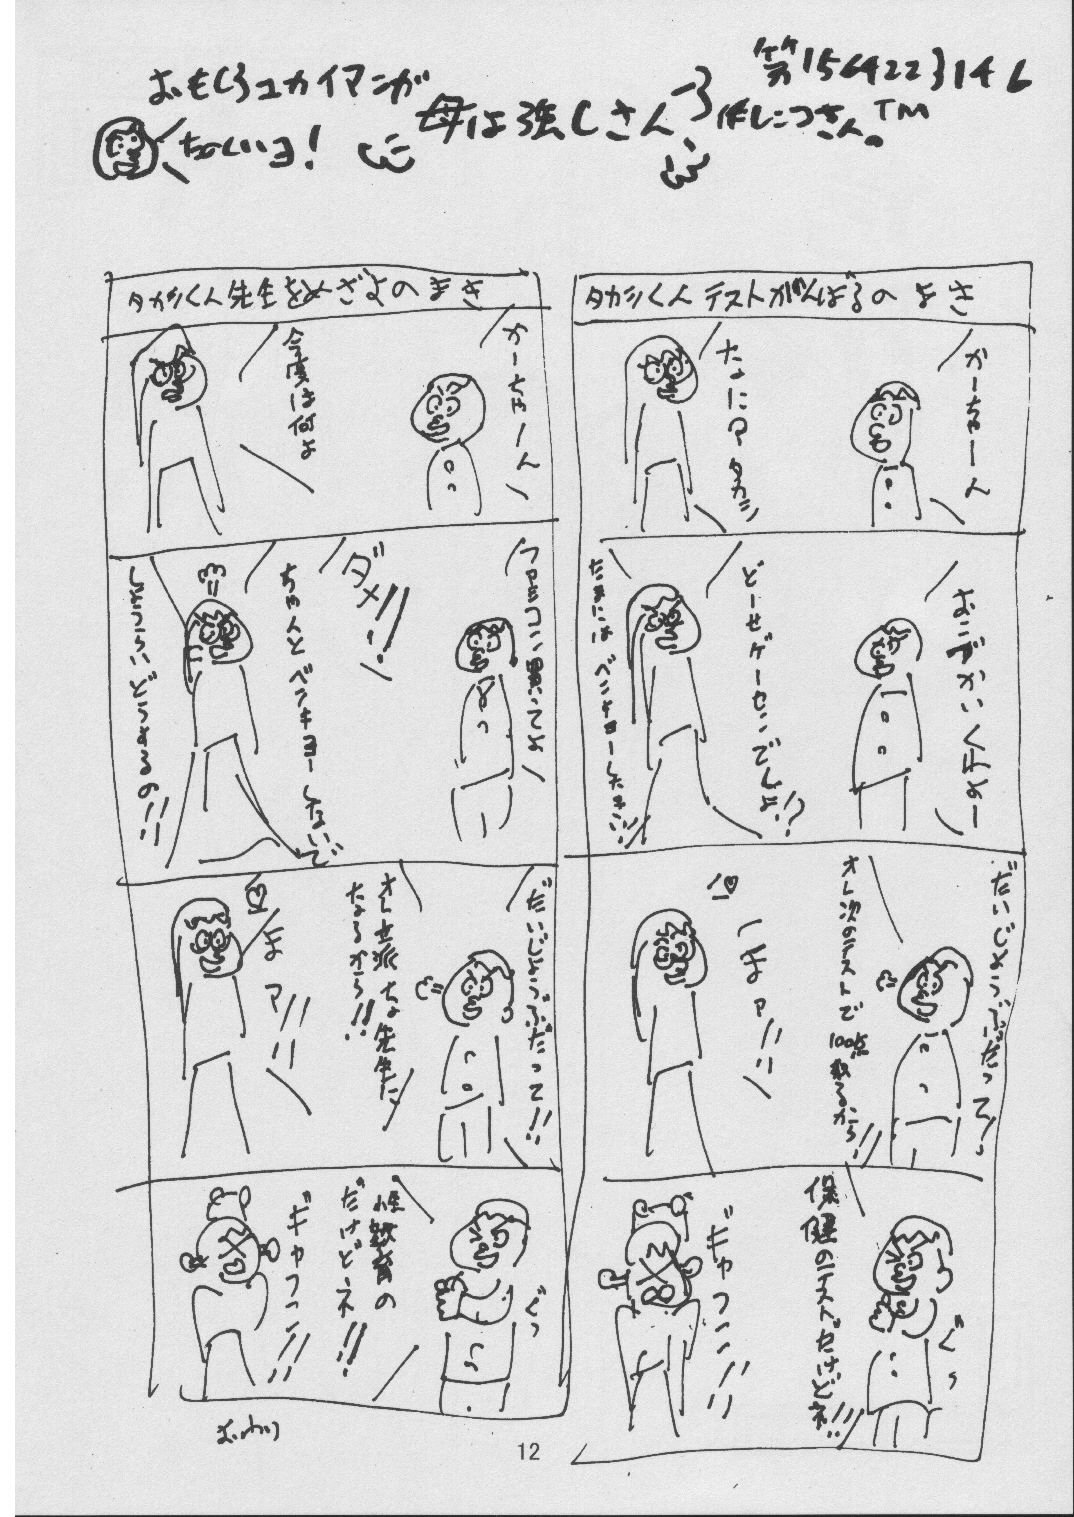 第1564223146
おもしろユカイマンガ
母は強しさん
作しこつさん。TM
ちょいヨ!
タカシくんテストがんばるのまき
かーちゃーん
なに?タカシ
おこづかいくれよー
どーせゲーセンでしょ!?
たまにはベンキョーしたまえ!!
だいじょうぶだって!!
オレ次のテストで100点取るから!!
まァ!!
保健のテストだけどネ!!
ぐっ
ギャフン!!
タカシくん先生をめざすのまき
かーちゃーん
今度は何よ
ダメ!!
ちゃんとベンキョーしないで
しょうらいどうするの!!
だいじょうぶだって!!
オレ立派な先生に
なるから!!
まァ!!
性教育の
だけどネ!!
ぐっ
ギャフン!!
おわり
12